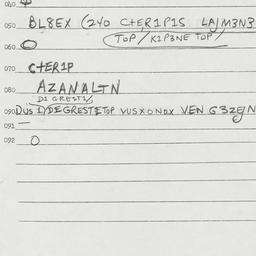 040
050 BL8EX (240 C+ER1P1S LAJM3N3
(TOP/K1P3NE TOP/
060
070 C+ER1P
080 AZANALTN
D1 GREST1/
090 DUS 1/DEGRESTETOP VUSXONOX VEN G3ZEJN
091 —
092 O